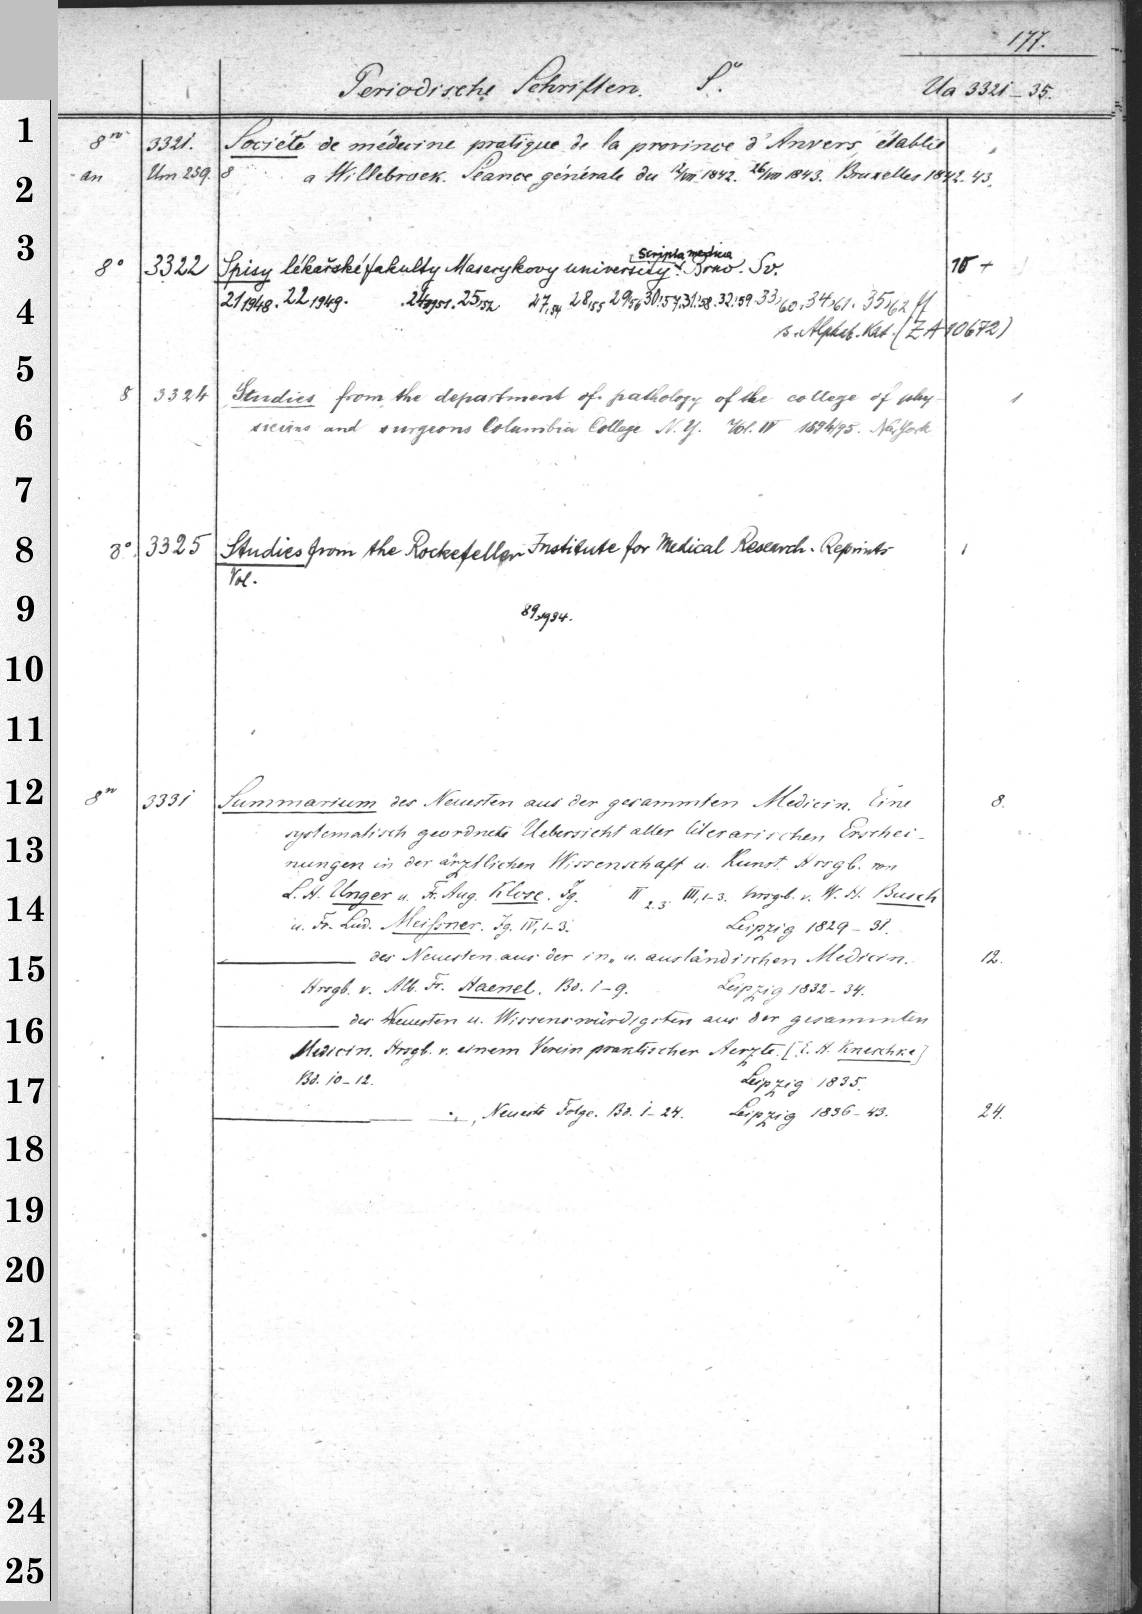 177.
Periodische Schriften. S. Ua 3321-35.
1
8° 3321. Société de médecine pratique de la province d'Anvers établie
2
an Um 239. 8 a Willebroek. Séance générale du 12/VII 1842. 26/VII 1843. Bruxelles 1842. 43.
3
Scripta medica
8° 3322 Spisy lékařské fakulty Masarykovy university. Brno. Sv. 10 +
4
21,1948. 22,1949. 24,1951. 25,52 27,54 28,55 29,56 30,57. 31,58. 32,59. 33,60. 34,61. 35,62 ff
s. Alphab. Kat. (ZA 10672)
5
8 3324 Studies from the department of pathology of the college of phy- 1
6
sicians and surgeons Columbia College N. Y. Vol. IV 1894/95. New York
7
8
8°. 3325 Studies from the Rockefeller Institute for Medical Research. Reprints 1
Vol.
9
89,1934.
10
11
12
8° 3331 Summarium des Neuesten aus der gesammten Medicin. Eine 8.
systematisch geordnete Uebersicht aller literarischen Erschei-
13
nungen in der ärztlichen Wissenschaft u. Kunst. Hrsgb. von
14
L. H. Unger u. Fr. Aug. Klose. Jg. II 2.3. III,1-3. hrsgb. v. W. H. Busch
u. Fr. Lud. Meissner. Jg. IV,1-3. Leipzig 1829-31.
15
des Neuesten aus der in- u. ausländischen Medicin. 12.
Hrsgb. v. Alb. Fr. Haenel. Bd. 1-9. Leipzig 1832-34.
16
des Neuesten u. Wissenswürdigsten aus der gesammten
Medicin. Hrsgb. v. einem Verein praktischer Aerzte. [E. H. Kneschke]
17
Bd. 10-12. Leipzig 1835.
Neueste Folge. Bd. 1-24. Leipzig 1836-43. 24.
18
19
20
21
22
23
24
25